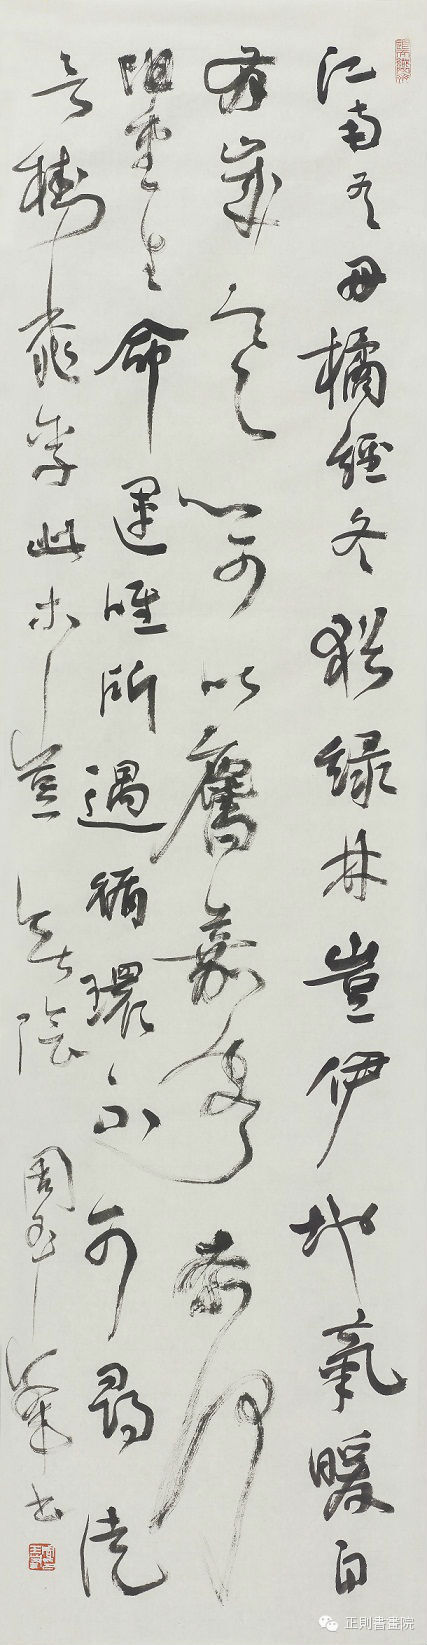 江南有丹橘經冬猶緑林豈伊地氣暖自
有歲寒心可以薦嘉客奈何
阻重命運唯所遇循環不可尋徒
言樹桃李此木豈無陰 周玉峰書
正則書畫院